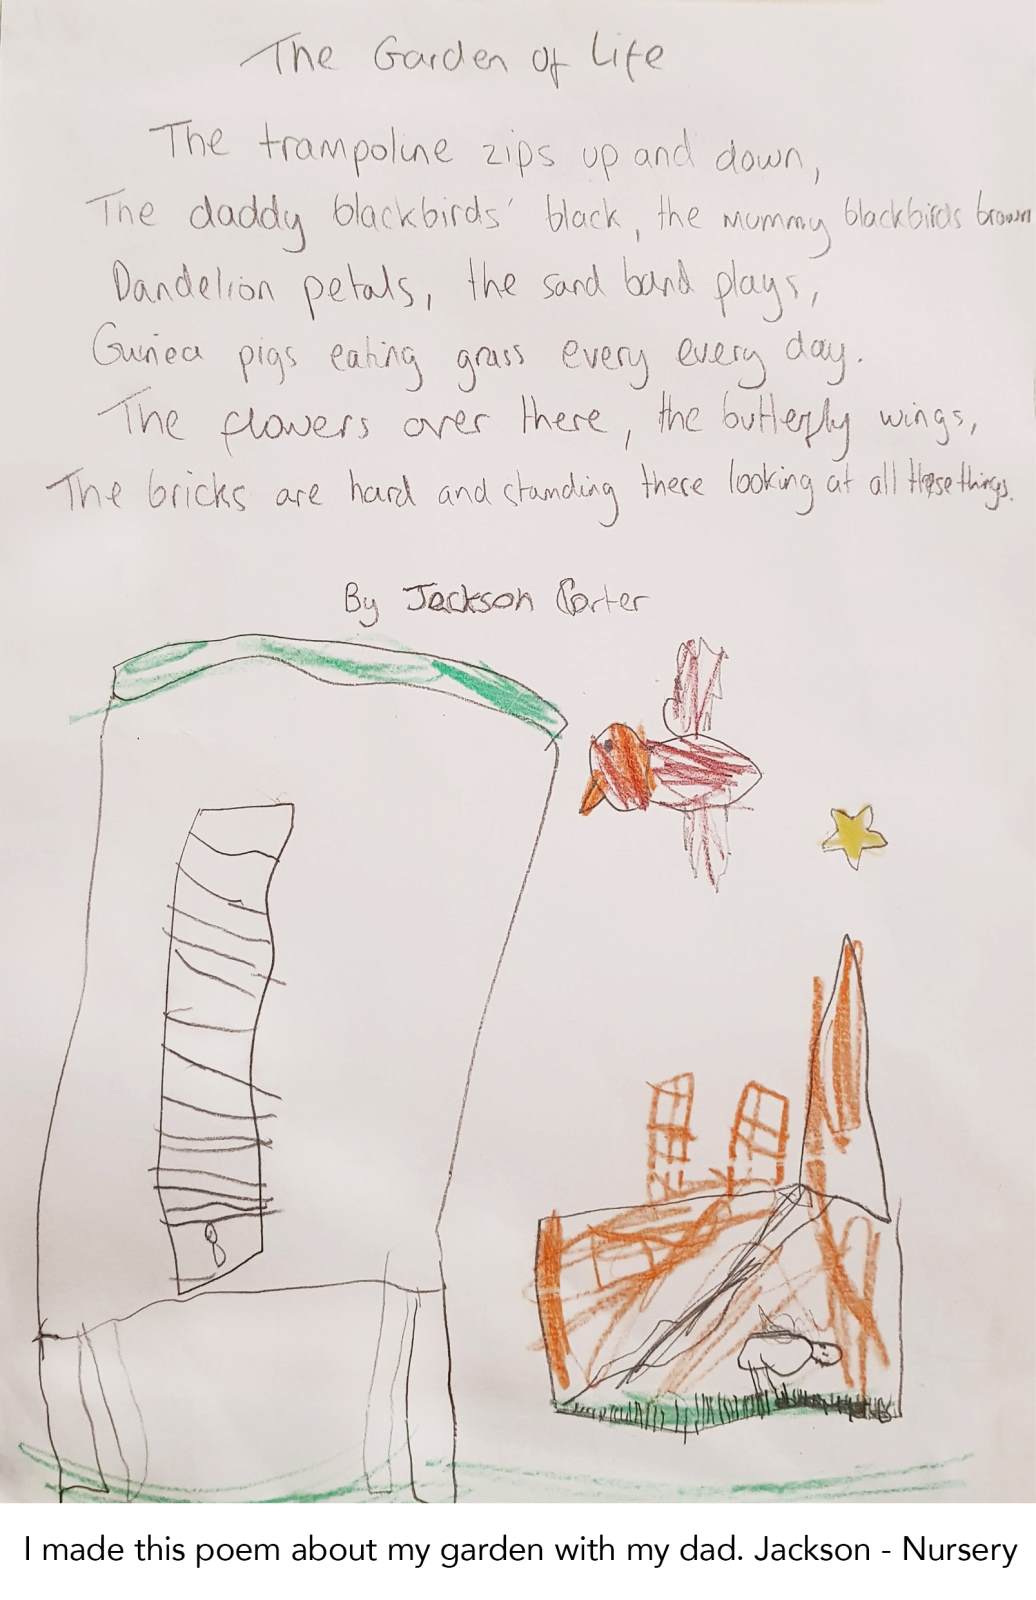 The Garden of Life
The trampoline zips up and down,
The daddy blackbirds' black, the mummy blackbirds brown
Dandelion petals, the sand band plays,
Guinea pigs eating grass every every day.
The flowers over there, the butterfly wings,
The bricks are hard and standing there looking at all these things.
By Jackson Porter
I made this poem about my garden with my dad. Jackson - Nursery